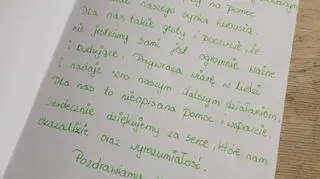 na pomoc
naszego synka Kubusia.
Dla nas takie gesty i poczucie, że
nie jesteśmy sami jest ogromnie ważne
i budujące. Przywraca wiarę w ludzi
i nadaje sens naszym dalszym działaniom.
Dla nas to nieopisana pomoc i wsparcie.
Serdecznie dziękujemy za serce, które nam
okazaliście oraz wyrozumiałość.
Pozdrawiamy